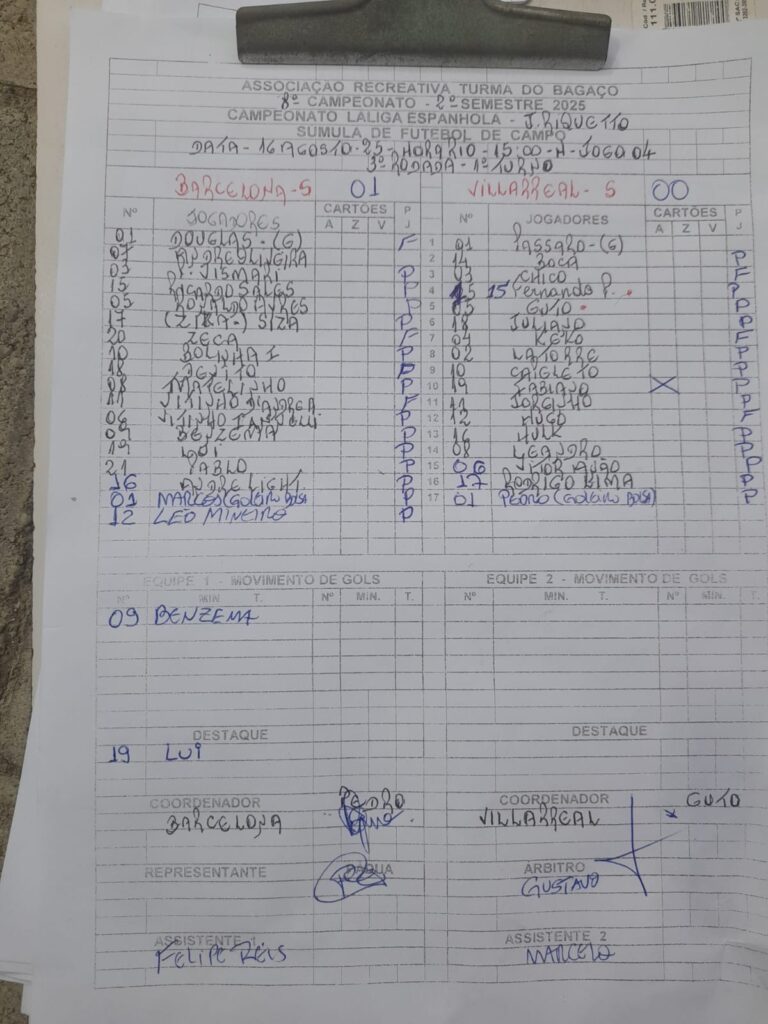 ASSOCIAÇÃO RECREATIVA TURMA DO BAGAÇO
8º CAMPEONATO - 2º SEMESTRE 2025
CAMPEONATO LALIGA ESPANHOLA - J. RIQUETTO
SÚMULA DE FUTEBOL DE CAMPO
DATA - 16 AGOSTO - 25 - HORÁRIO - 15:00 - H - JOGO 04
3ª RODADA - 1º TURNO
BARCELONA - S 01 VILLARREAL - S 00
Nº JOGADORES CARTÕES P Nº JOGADORES CARTÕES P
A Z V J A Z V J
01 DOUGLAS - (G) F 1 01 PASSARO - (G)
07 ANDRE OLIVEIRA 2 14 BOCA P
03 P. JISMARI P 3 03 CHICO F
15 RICARDO SALES P 4 15 Fernando P. P
05 RONALDO AYRES P 5 05 GUTO
17 (ZIKA-) SIZA P 6 18 JULIANO
20 ZECA F 7 04 KEKO
10 BOLINHA I P 8 02 LATORRE
18 9 10 CAIGLETO
08 MATELINHO P 10 19 FABIANO X
11 VITINHO D'ANDREA F 11 11 JORGINHO
06 VITINHO P 12 12 HUGO
09 BENZEMA P 13 16 HULK
19 LUI P 14 08 LEANDRO
21 PABLO P 15 06 P
16 ANDRE LIGHT P 16 17 RODRIGO LIMA P
01 MARCOS (GOLEIRO BOLSA P 17 01 PEDRO (GOLEIRO BOLSA) P
12 LEO MINEIRO P
EQUIPE 1 - MOVIMENTO DE GOLS EQUIPE 2 - MOVIMENTO DE GOLS
Nº MIN. T. Nº MIN. T. Nº MIN. T. Nº MIN. T.
09 BENZEMA
DESTAQUE DESTAQUE
19 LUI
COORDENADOR PEDRO COORDENADOR GUTO
BARCELONA VILLARREAL
REPRESENTANTE ÁRBITRO
GUSTAVO
ASSISTENTE 1 ASSISTENTE 2
FELIPE REIS MARCELO